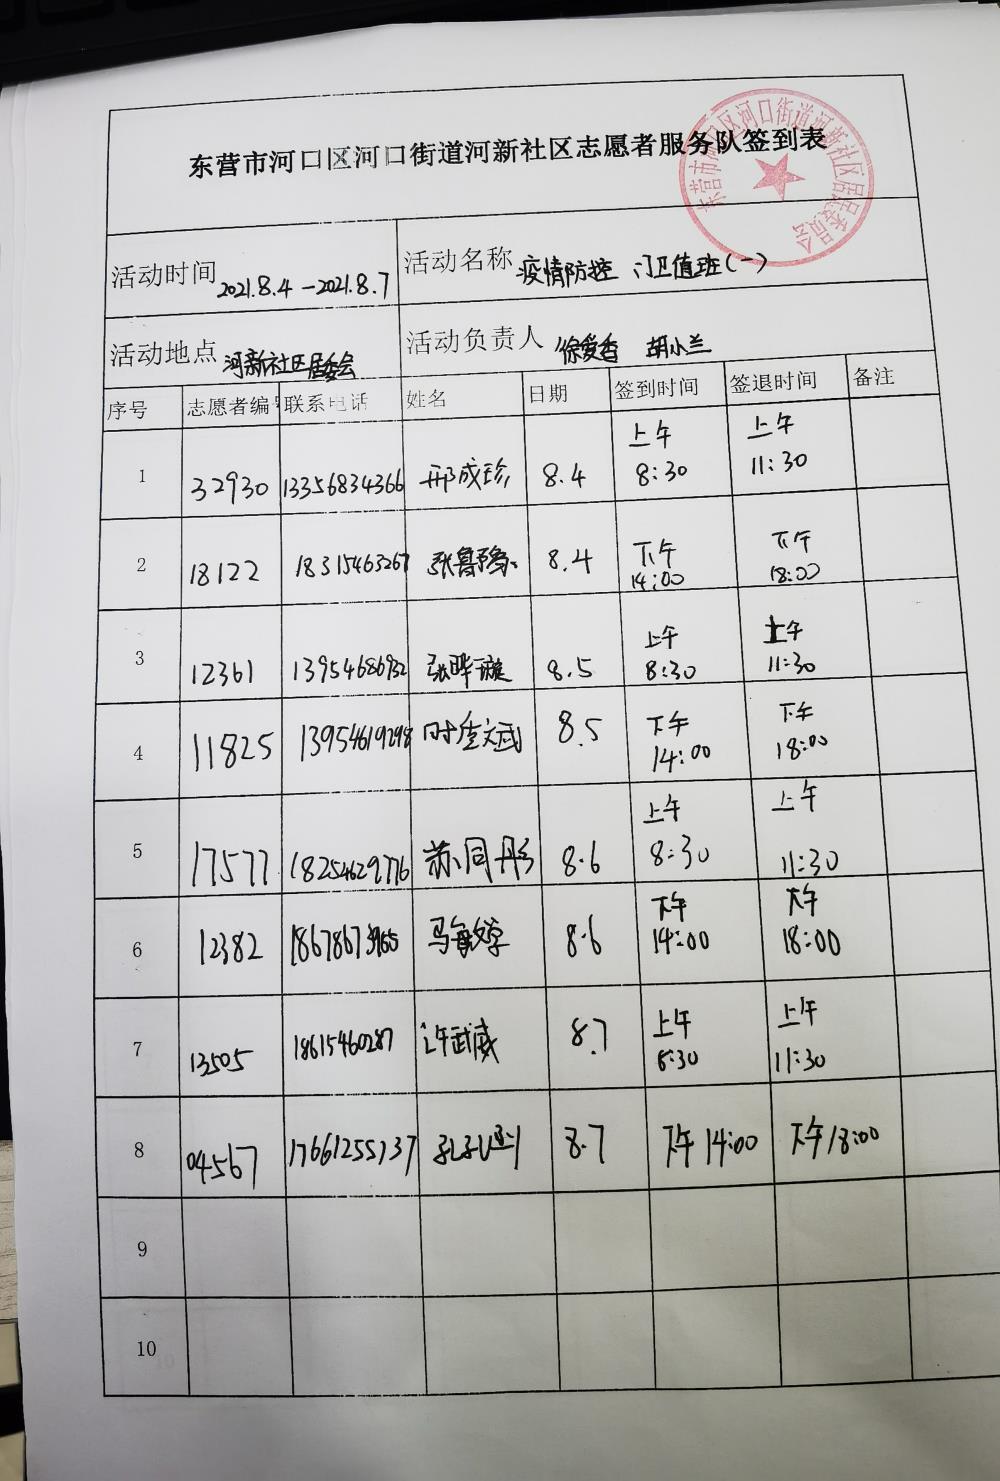 东营市河口区河口街道河新社区志愿者服务队签到表
东营市河口区河口街道河新社区居民委员会
活动时间 2021.8.4-2021.8.7 活动名称 疫情防控 门卫值班(一)
活动地点 河新社区居委会 活动负责人 徐爱香 胡小兰
序号 志愿者编号 联系电话 姓名 日期 签到时间 签退时间 备注
1 32930 13356834366 邢成珍 8.4 上午 8:30 上午 11:30
2 18122 18315463267 8.4 下午 14:00 下午 18:00
3 12361 13954686932 张晔璇 8.5 上午 8:30 上午 11:30
4 11825 13954619298 8.5 下午 14:00 下午 18:00
5 17577 18254629776 苏同彤 8.6 上午 8:30 上午 11:30
6 12382 8.6 下午 14:00 下午 18:00
7 13505 18615460287 许武威 8.7 上午 8:30 上午 11:30
8 04567 17661255737 8.7 下午 14:00 下午 18:00
9
10